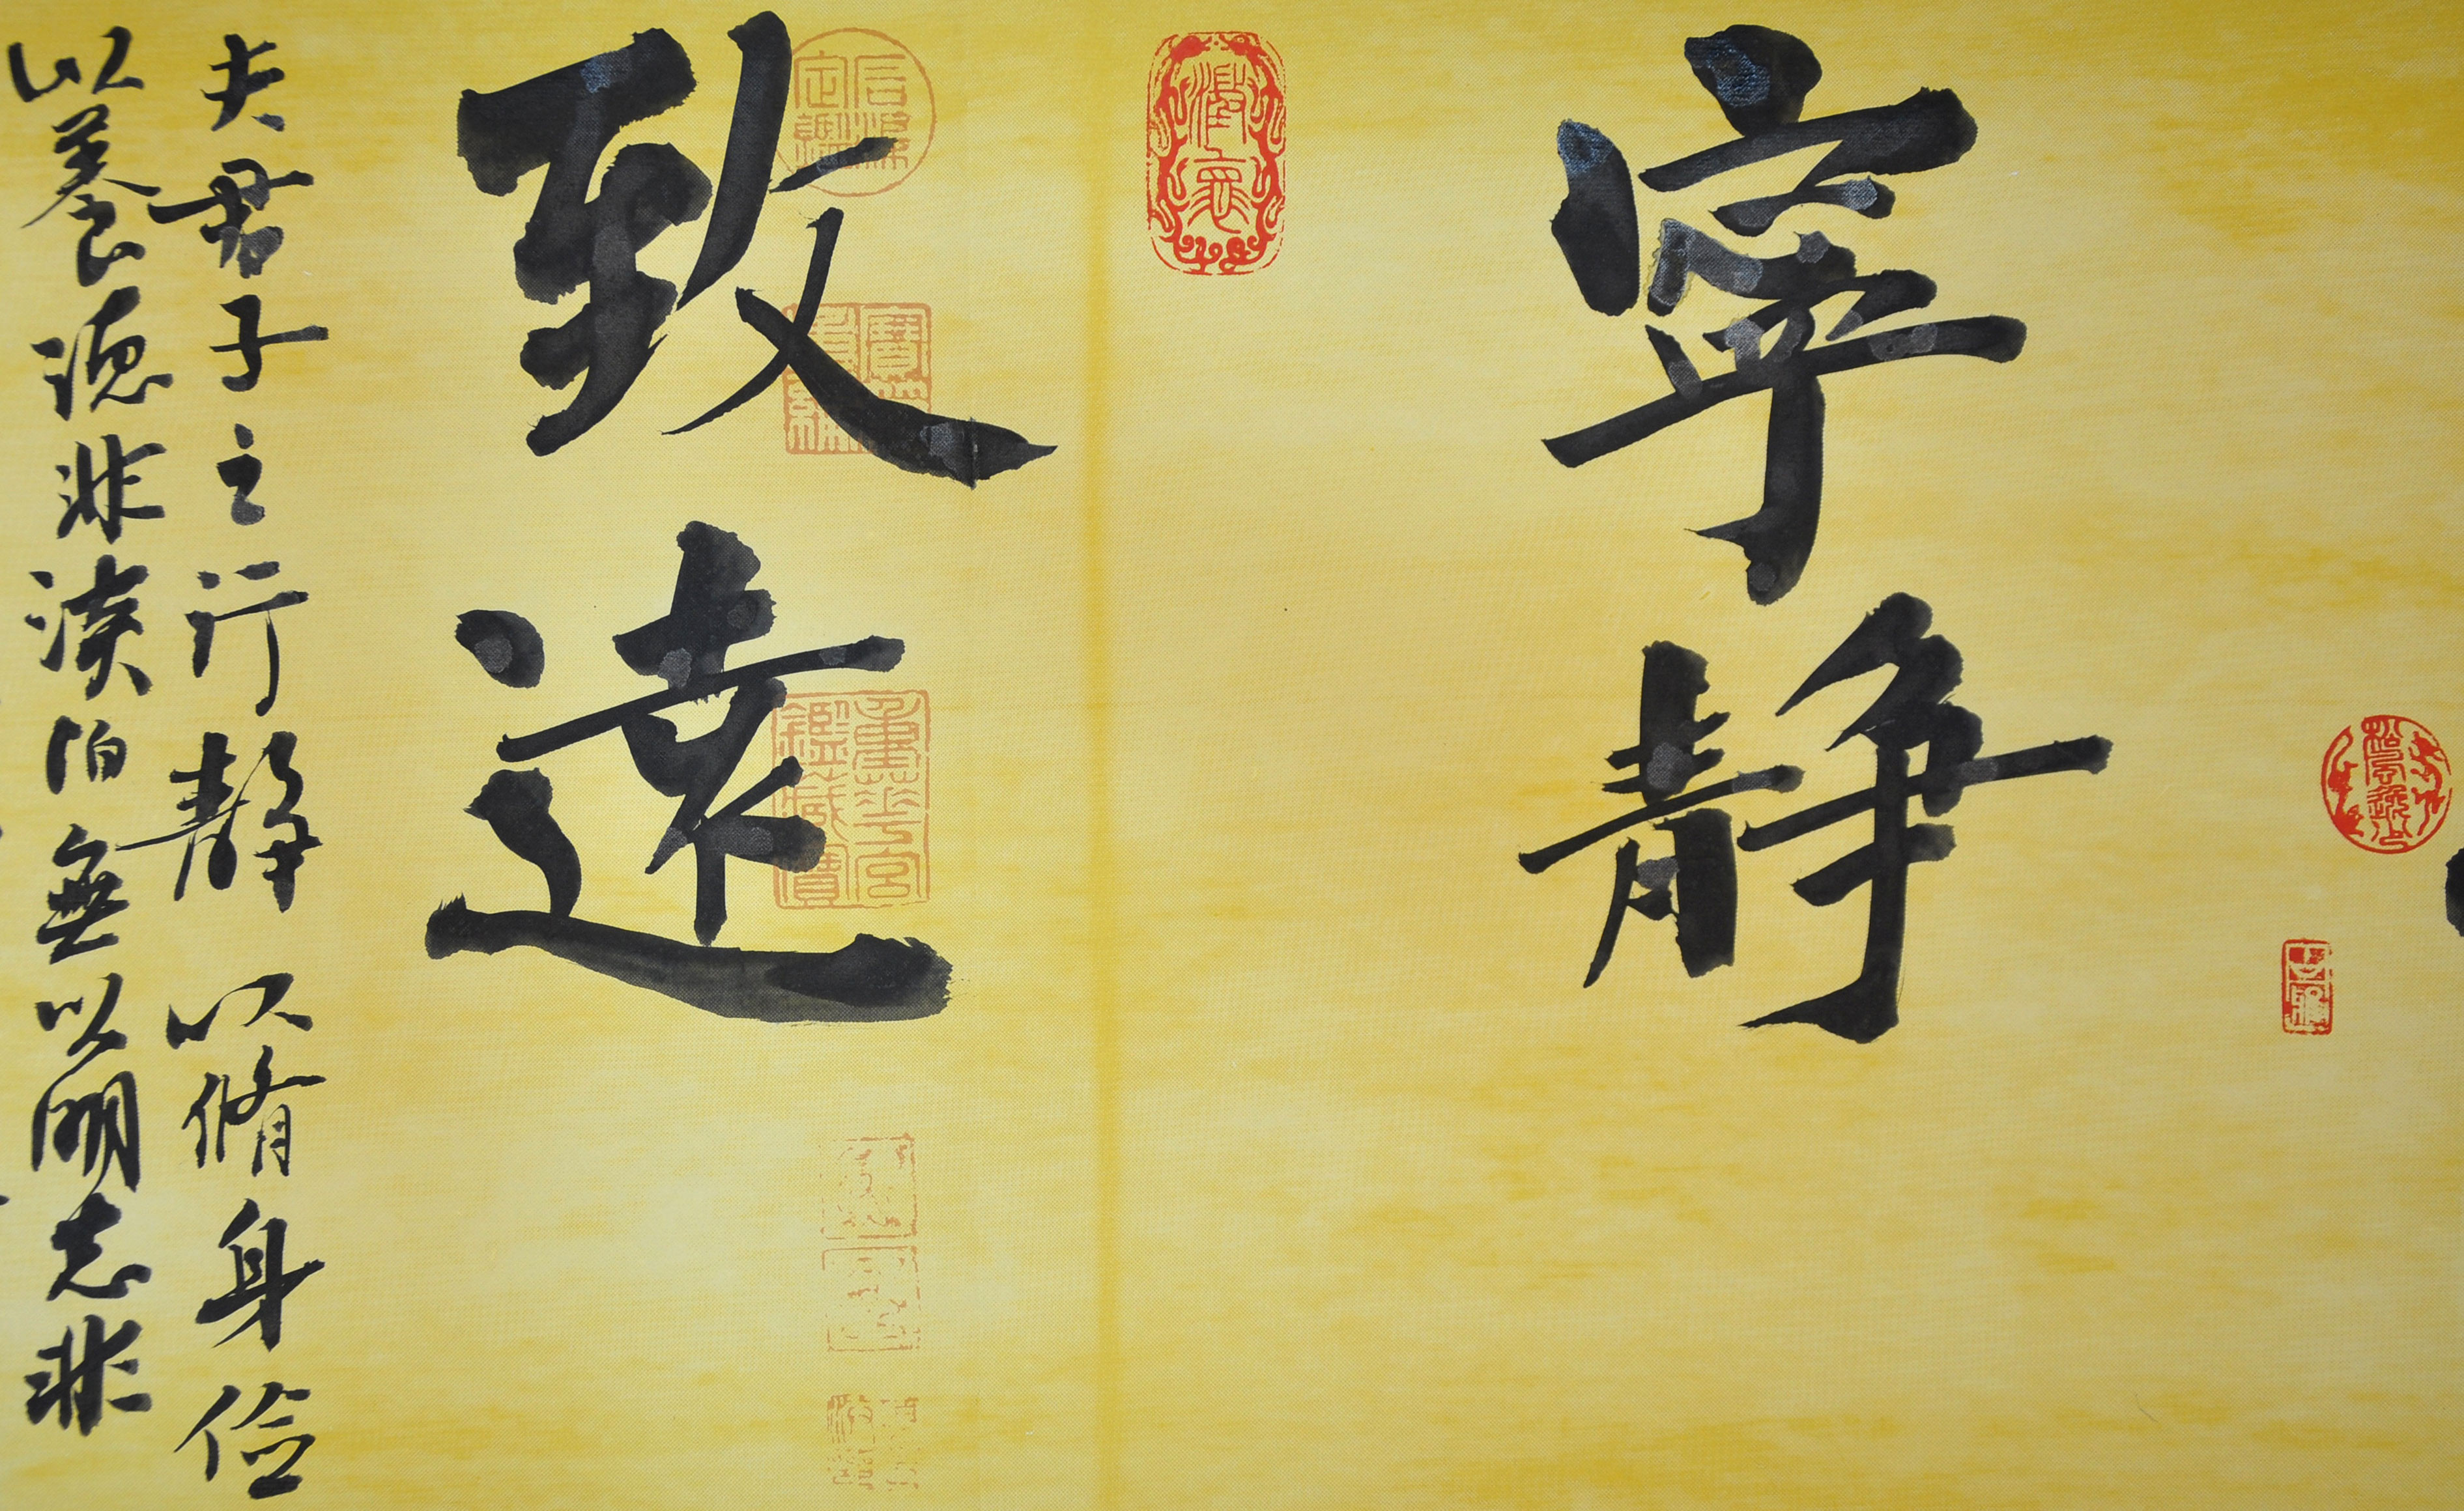 寧静
致遠
夫君子之行靜以脩身儉
以養德非淡泊無以明志非